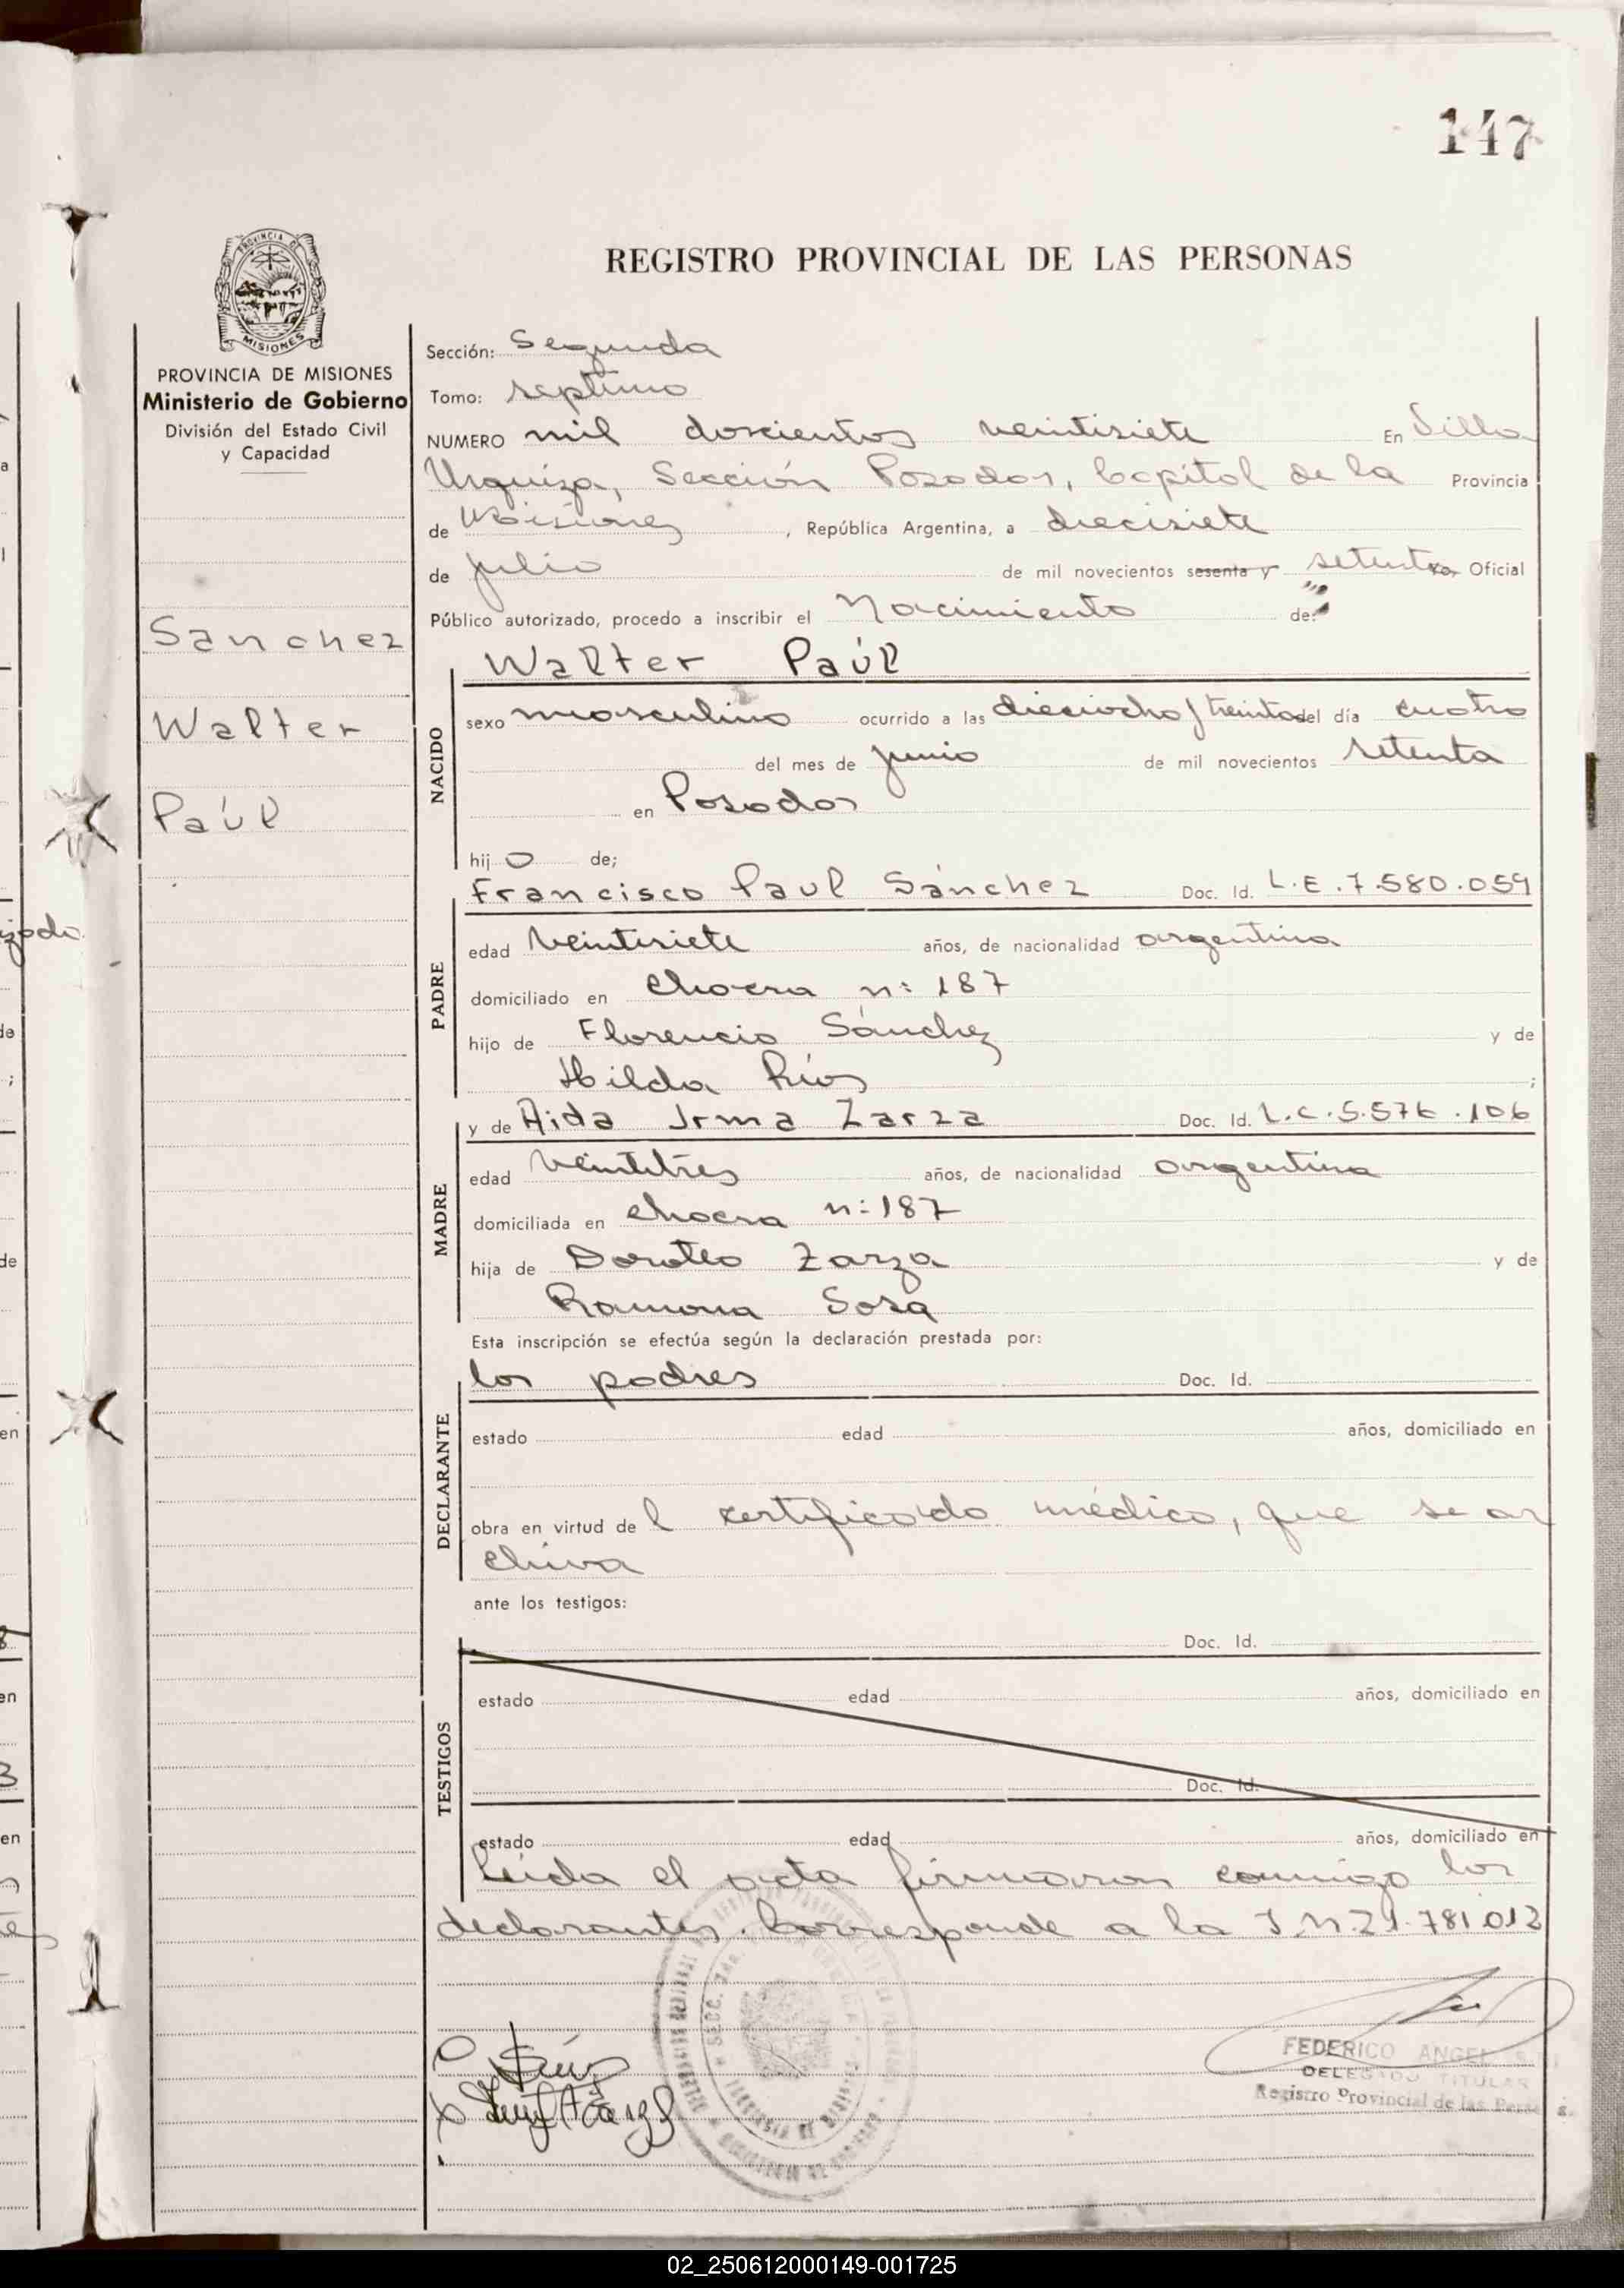 147
REGISTRO PROVINCIAL DE LAS PERSONAS
PROVINCIA DE
MISIONES
PROVINCIA DE MISIONES
Ministerio de Gobierno
División del Estado Civil
y Capacidad
Sanchez
Walter
Paúl
Sección: Segunda
Tomo: septimo
NUMERO mil doscientos veintisiete En Villa
Urquiza, Sección Posadas, Capital de la Provincia
de Misiones, República Argentina, a diecisiete
de julio de mil novecientos sesenta y setenta yo, Oficial
Público autorizado, procedo a inscribir el Nacimiento de:
Walter Paúl
NACIDO
sexo masculino ocurrido a las dieciocho/treinta del día cuatro
del mes de junio de mil novecientos setenta
en Posadas
hijo de;
Francisco Paul Sánchez Doc. Id. L.E.7.580.059
PADRE
edad veintisiete años, de nacionalidad argentina
domiciliado en chacra n: 187
hijo de Florencio Sánchez y de
Hilda Ríos ;
y de Aida Irma Zarza Doc. Id. L.C.5.576.106
MADRE
edad veintitres años, de nacionalidad argentina
domiciliada en chacra n: 187
hija de Doroteo Zarza y de
Ramona Sosa
Esta inscripción se efectúa según la declaración prestada por:
los padres Doc. Id.
DECLARANTE
estado edad años, domiciliado en
obra en virtud del certificado médico, que se ar
chiva
ante los testigos:
Doc. Id.
TESTIGOS
estado edad años, domiciliado en
Doc. Id.
estado edad años, domiciliado en
Leída el acta firmaron conmigo los
declarantes. Corresponde a la I.N.21.781.012
FEDERICO ANGEL
DELEGADO TITULAR
Registro Provincial de las Personas
02_250612000149-001725